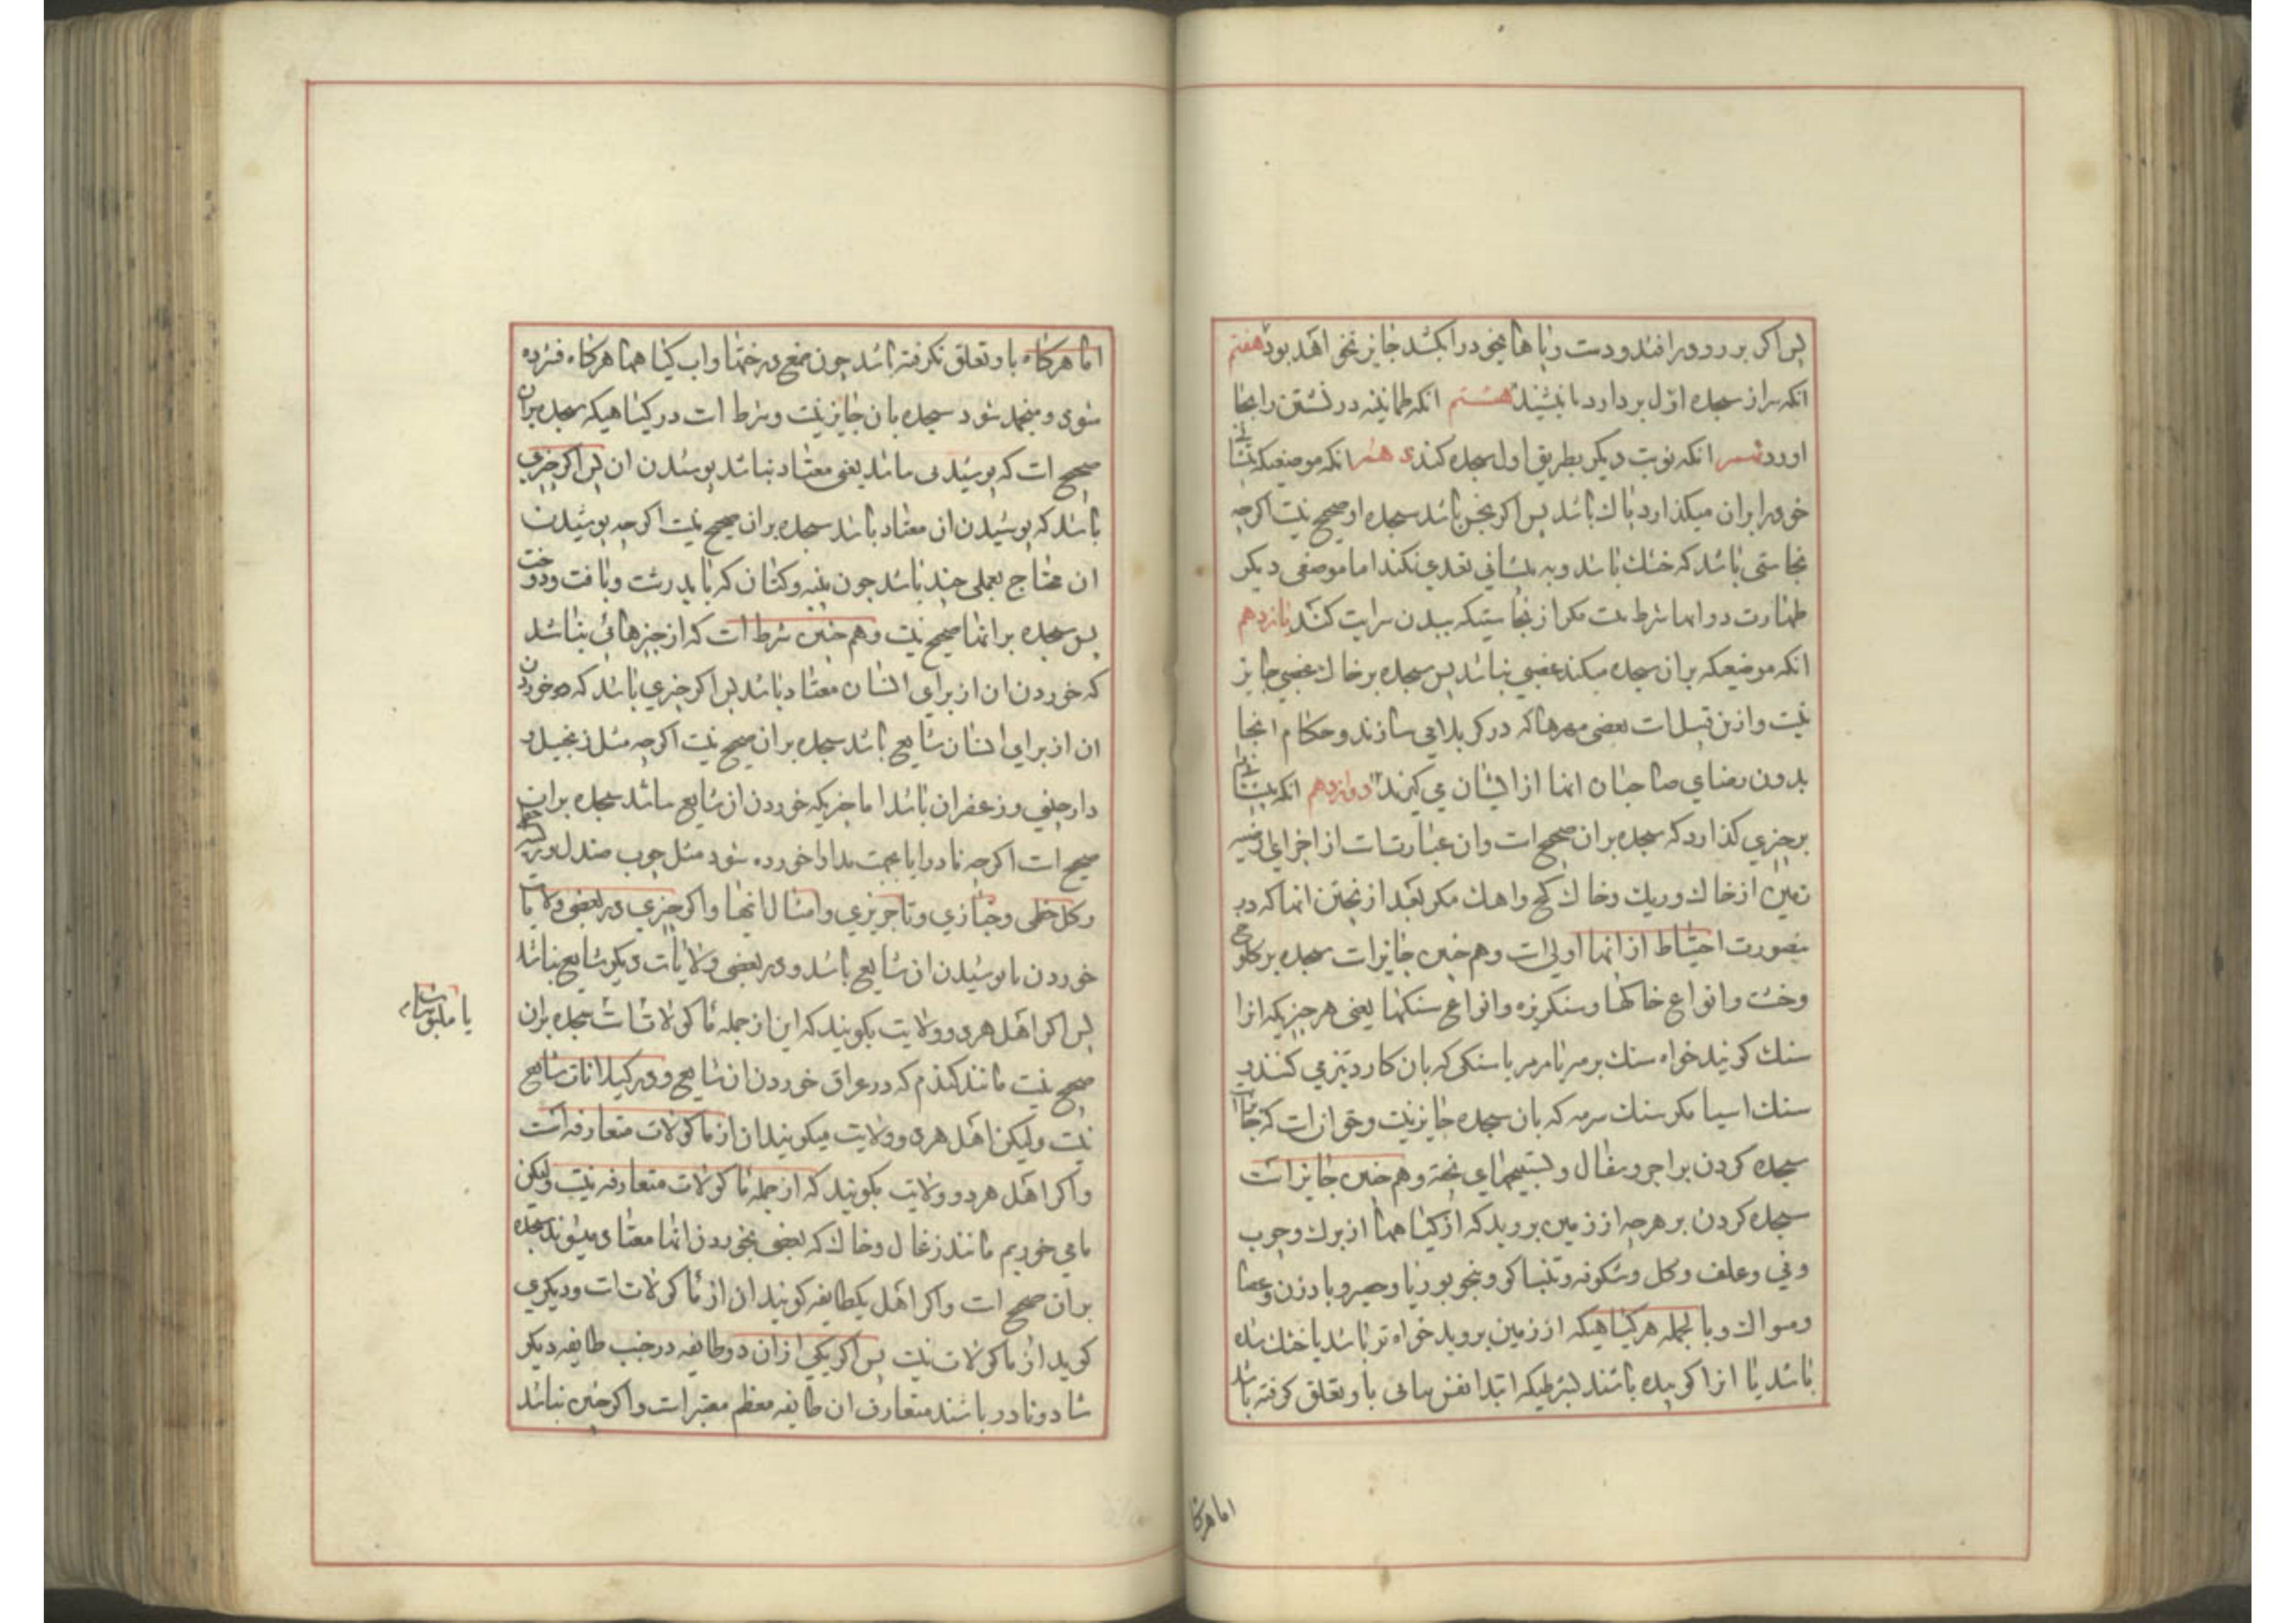 پس اکر بر رو در افتد و دست و پاها بخود در اکشد جایز نخواهد بود هفتم
انکه سر از سجده اول بردارد تا بنشیند هشتم انکه طمانینه در نشستن را بجا
اورد نهم انکه نوبت دیکر بطریق اول سجده کند دهم انکه موضعیکه پیشانی
خود را بران میکذارد پاک باشد پس اکر نجس باشد سجده او صحیح نیست اکرچه
نجاستی باشد که خشک باشد و به پیشانی تعدی نکند اما موضعی دیکر
طهارت در انها شرط نیست مکر از نجاستیکه ببدن سرایت کند یازدهم
انکه موضعیکه بران سجده میکند غصبی نباشد پس سجده بر خاک غصبی جایز
نیست و ازین قبیل است بعضی مهرها که در کربلا می سازند و حکام انجا
بدون رضای صاحبان انها از ایشان می کیرند دوازدهم انکه پیشانی
بر چیزی کذارد که سجده بران صحیح است و ان عبارتست از اجزای
زمین از خاک و ریک و خاک کچ و اهک مکر بعد از پختن انها که در
ینصورت احتیاط از انها اولی است و هم چنین جایز است سجده بر کلوخ
و خشت و انواع خاکها و سنکریزه و انواع سنکها یعنی هر چیزیکه انرا
سنک کویند خواه سنک برمه یا مرمر یا سنکی که بان کارد تیز می کنند و
سنک اسیا مکر سنک سرمه که بان سجده جایز نیست و حق ان است که جایز است
سجده کردن بر اجر و سفال و تسبیحهای پخته و هم چنین جایز است
سجده کردن بر هر چه از زمین بروید که از کیاهها از برک و چوب
و نی و علف و کل و شکوفه و تنباکو و پنجو بوریا و حصیر و بادزن و عصا
و مسواک و بالجمله هر کیاهیکه از زمین بروید خواه تر باشد یا خشک شده
باشد یا انرا کوبیده باشند بشرطیکه ابتدا نفس نباتی باو تعلق کرفته باشد
اما هرکا
اما هرکاه باو تعلق نکرفته باشد چون صمغ درختها و اب کیاهها هرکاه فشرده
شوی و منجمد شود سجده بان جایز نیست و شرط است در کیاهیکه سجده بران
صحیح است که پوشیدنی نباشد یعنی معتاد نباشد پوشیدن ان پس اکر چیزی
باشد که پوشیدن ان معتاد باشد سجده بران صحیح نیست اکرچه پوشیدن
ان محتاج بعملی چند باشد چون پنبه و کتان که باید رشت و بافت و دوخت
پس سجده بر انها صحیح نیست و هم چنین شرط است که از چیزهائی نباشد
که خوردن ان از برای انسان معتاد باشد پس اکر چیزی باشد که خوردن
ان از برای انسان شایع باشد سجده بران صحیح نیست اکرچه مثل زنجبیل و
دارچینی و زعفران باشد اما چیزیکه خوردن ان شایع نباشد سجده بران
صحیح است اکرچه نادرا یا بجهت مداوا خورده شود مثل چوب صندل و
و کل خطمی و خبازی و تاجریزی و امثال انها و اکر چیزی در بعضی ولایات
خوردن یا پوشیدن ان شایع باشد و در بعضی ولایات دیکر شایع نباشد
پس اکر اهل هر دو ولایت بکویند که این از جمله ماکولاتست سجده بران
صحیح نیست مانند کندم که در عراق خوردن ان شایع و در کیلانات شایع
نیست ولیکن اهل هردو ولایت میکویند ان از ماکولات متعارفه است
و اکر اهل هر دو ولایت بکویند که از جمله ماکولات متعارفه نیست ولیکن
ما می خوریم مانند زغال و خاک که بعضی بخوردن انها معتاد میشوند سجده
بران صحیح است و اکر اهل یکطایفه کویند ان از ماکولات است و دیکری
کوید از ماکولات نیست پس اکر یکی از ان دو طایفه در جنب طایفه دیکر
شاد و نادر باشند متعارف ان طایفه معظم معتبر است و اکر چنین نباشد
یا ملبوسات